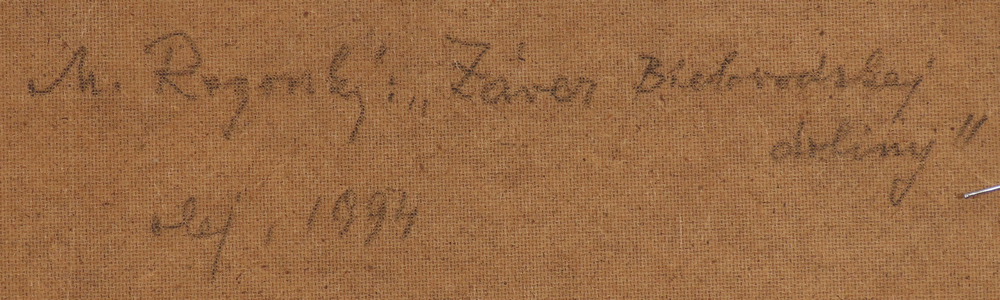 M. Rogovský: „Záver Bielovodskej
doliny"
olej, 1994